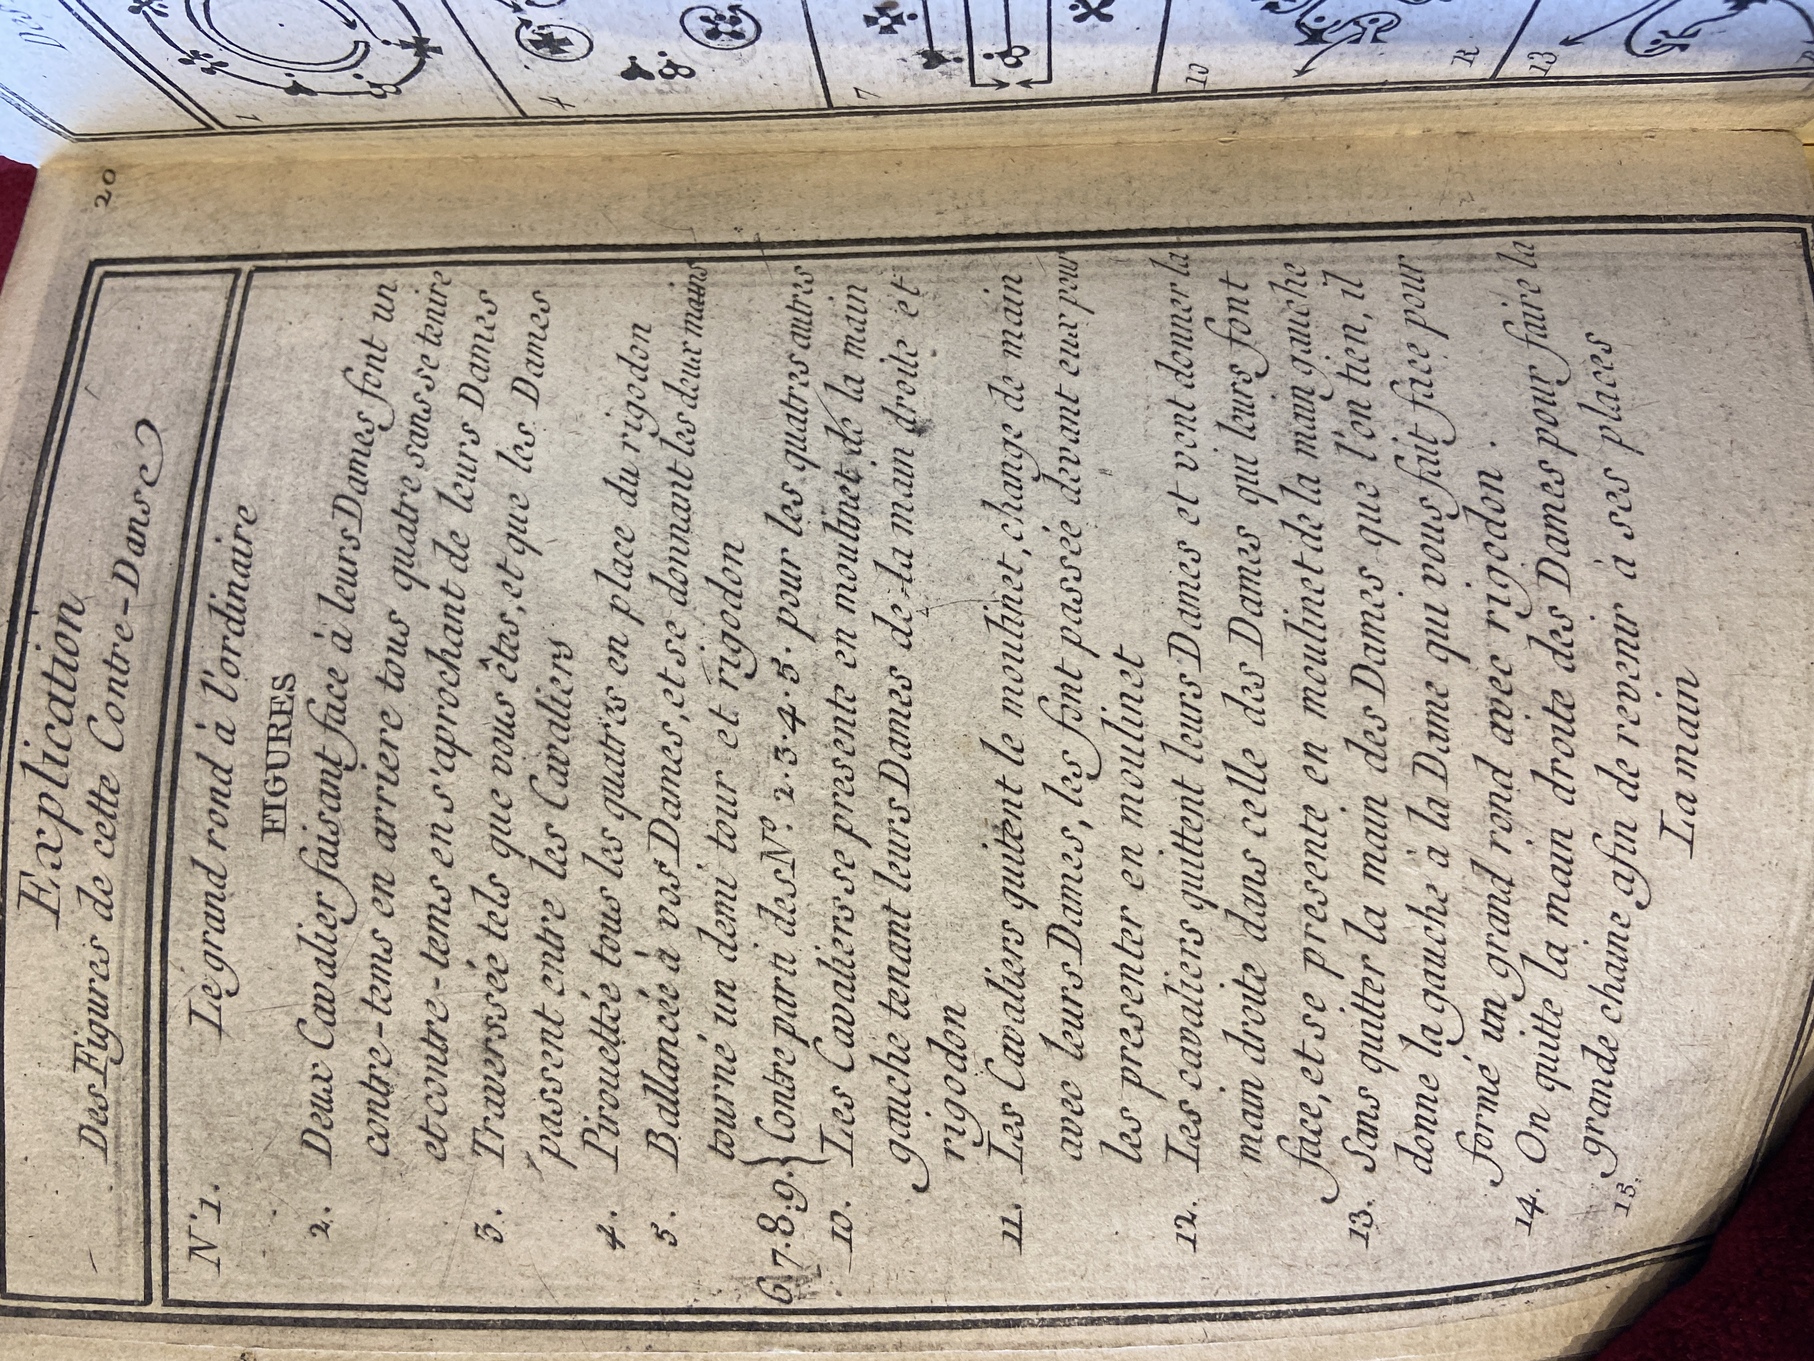 20
Explication
Des Figures de cette Contre-Danse
N.º 1. Le grand rond à l'ordinaire
FIGURES
2. Deux Cavalier faisant face à leurs Dames font un
contre-tems en arriere tous quatre sans se tenire
et contre-tems en s'aprochant de leurs Dames
3. Traverssée tels que vous êtes, et que les Dames
passent entre les Cavaliers
4. Pirouettée tous les quatres en place du rigodon
5. Ballancée à vos Dames, et se donnant les deux mains
tourné un demi tour et rigodon
6.7.8.9. { Contre parti des Nº. 2.3.4.5. pour les quatres autres
10. Les Cavaliers se presente en moulinet de la main
gauche tenant leurs Dames de la main droite et
rigodon
11. Les Cavaliers quitent le moulinet, change de main
avec leurs Dames, les font passée devant eux pour
les presenter en moulinet
12. Les cavaliers quittent leurs Dames et vont donner la
main droite dans celle des Dames qui leurs font
face, et se presente en moulinet de la main gauche
13. Sans quitter la main des Dames que l'on tien, il
donne la gauche à la Dame qui vous fait face pour
formé un grand rond avec rigodon.
14. On quitte la main droite des Dames pour faire la
15. grande chaine afin de revenir à ses places
La main
1
4
7
10
12
13